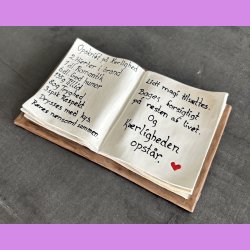 Opskrift på Kærlighed
2 Hjerter i brand
1 dl. Romantik
dl. humor
tillid
kg Tryghed
3 spsk Respekt
Drysses med kys
Røres nænsomt sammen
Lidt magi tilsættes.
Bages forsigtigt
på resten af livet.
Og
Kærligheden
opstår.